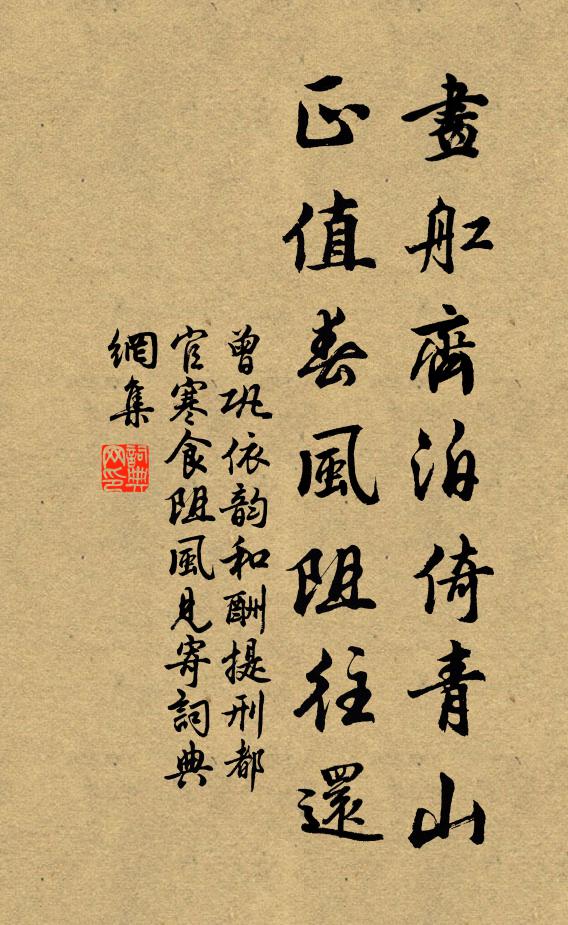 畫舡齊泊倚青山
正值春風阻往還
曾巩依韵和酬提刑都
官寒食阻風見寄詞典
網集
詞典
网印